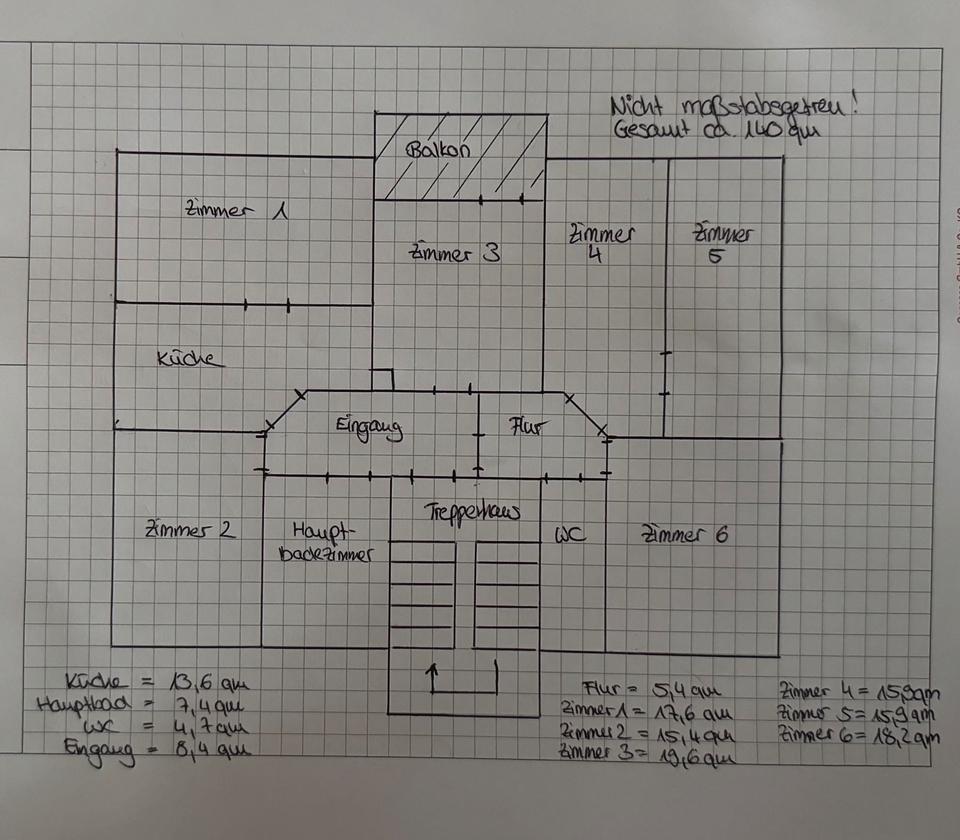 Nicht maßstabsgetreu!
Gesamt ca. 140 qm
Balkon
Zimmer 1
Zimmer 3
Zimmer
4
Zimmer
5
Küche
Eingang
Flur
Treppenhaus
Zimmer 2
Haupt-
badezimmer
WC
Zimmer 6
Küche = 13,6 qm
Hauptbad = 7,4 qm
WC = 4,7 qm
Eingang = 8,4 qm
Flur = 5,4 qm
Zimmer 1 = 17,6 qm
Zimmer 2 = 15,4 qm
Zimmer 3 = 19,6 qm
Zimmer 4 = 15,9 qm
Zimmer 5 = 15,9 qm
Zimmer 6 = 18,2 qm